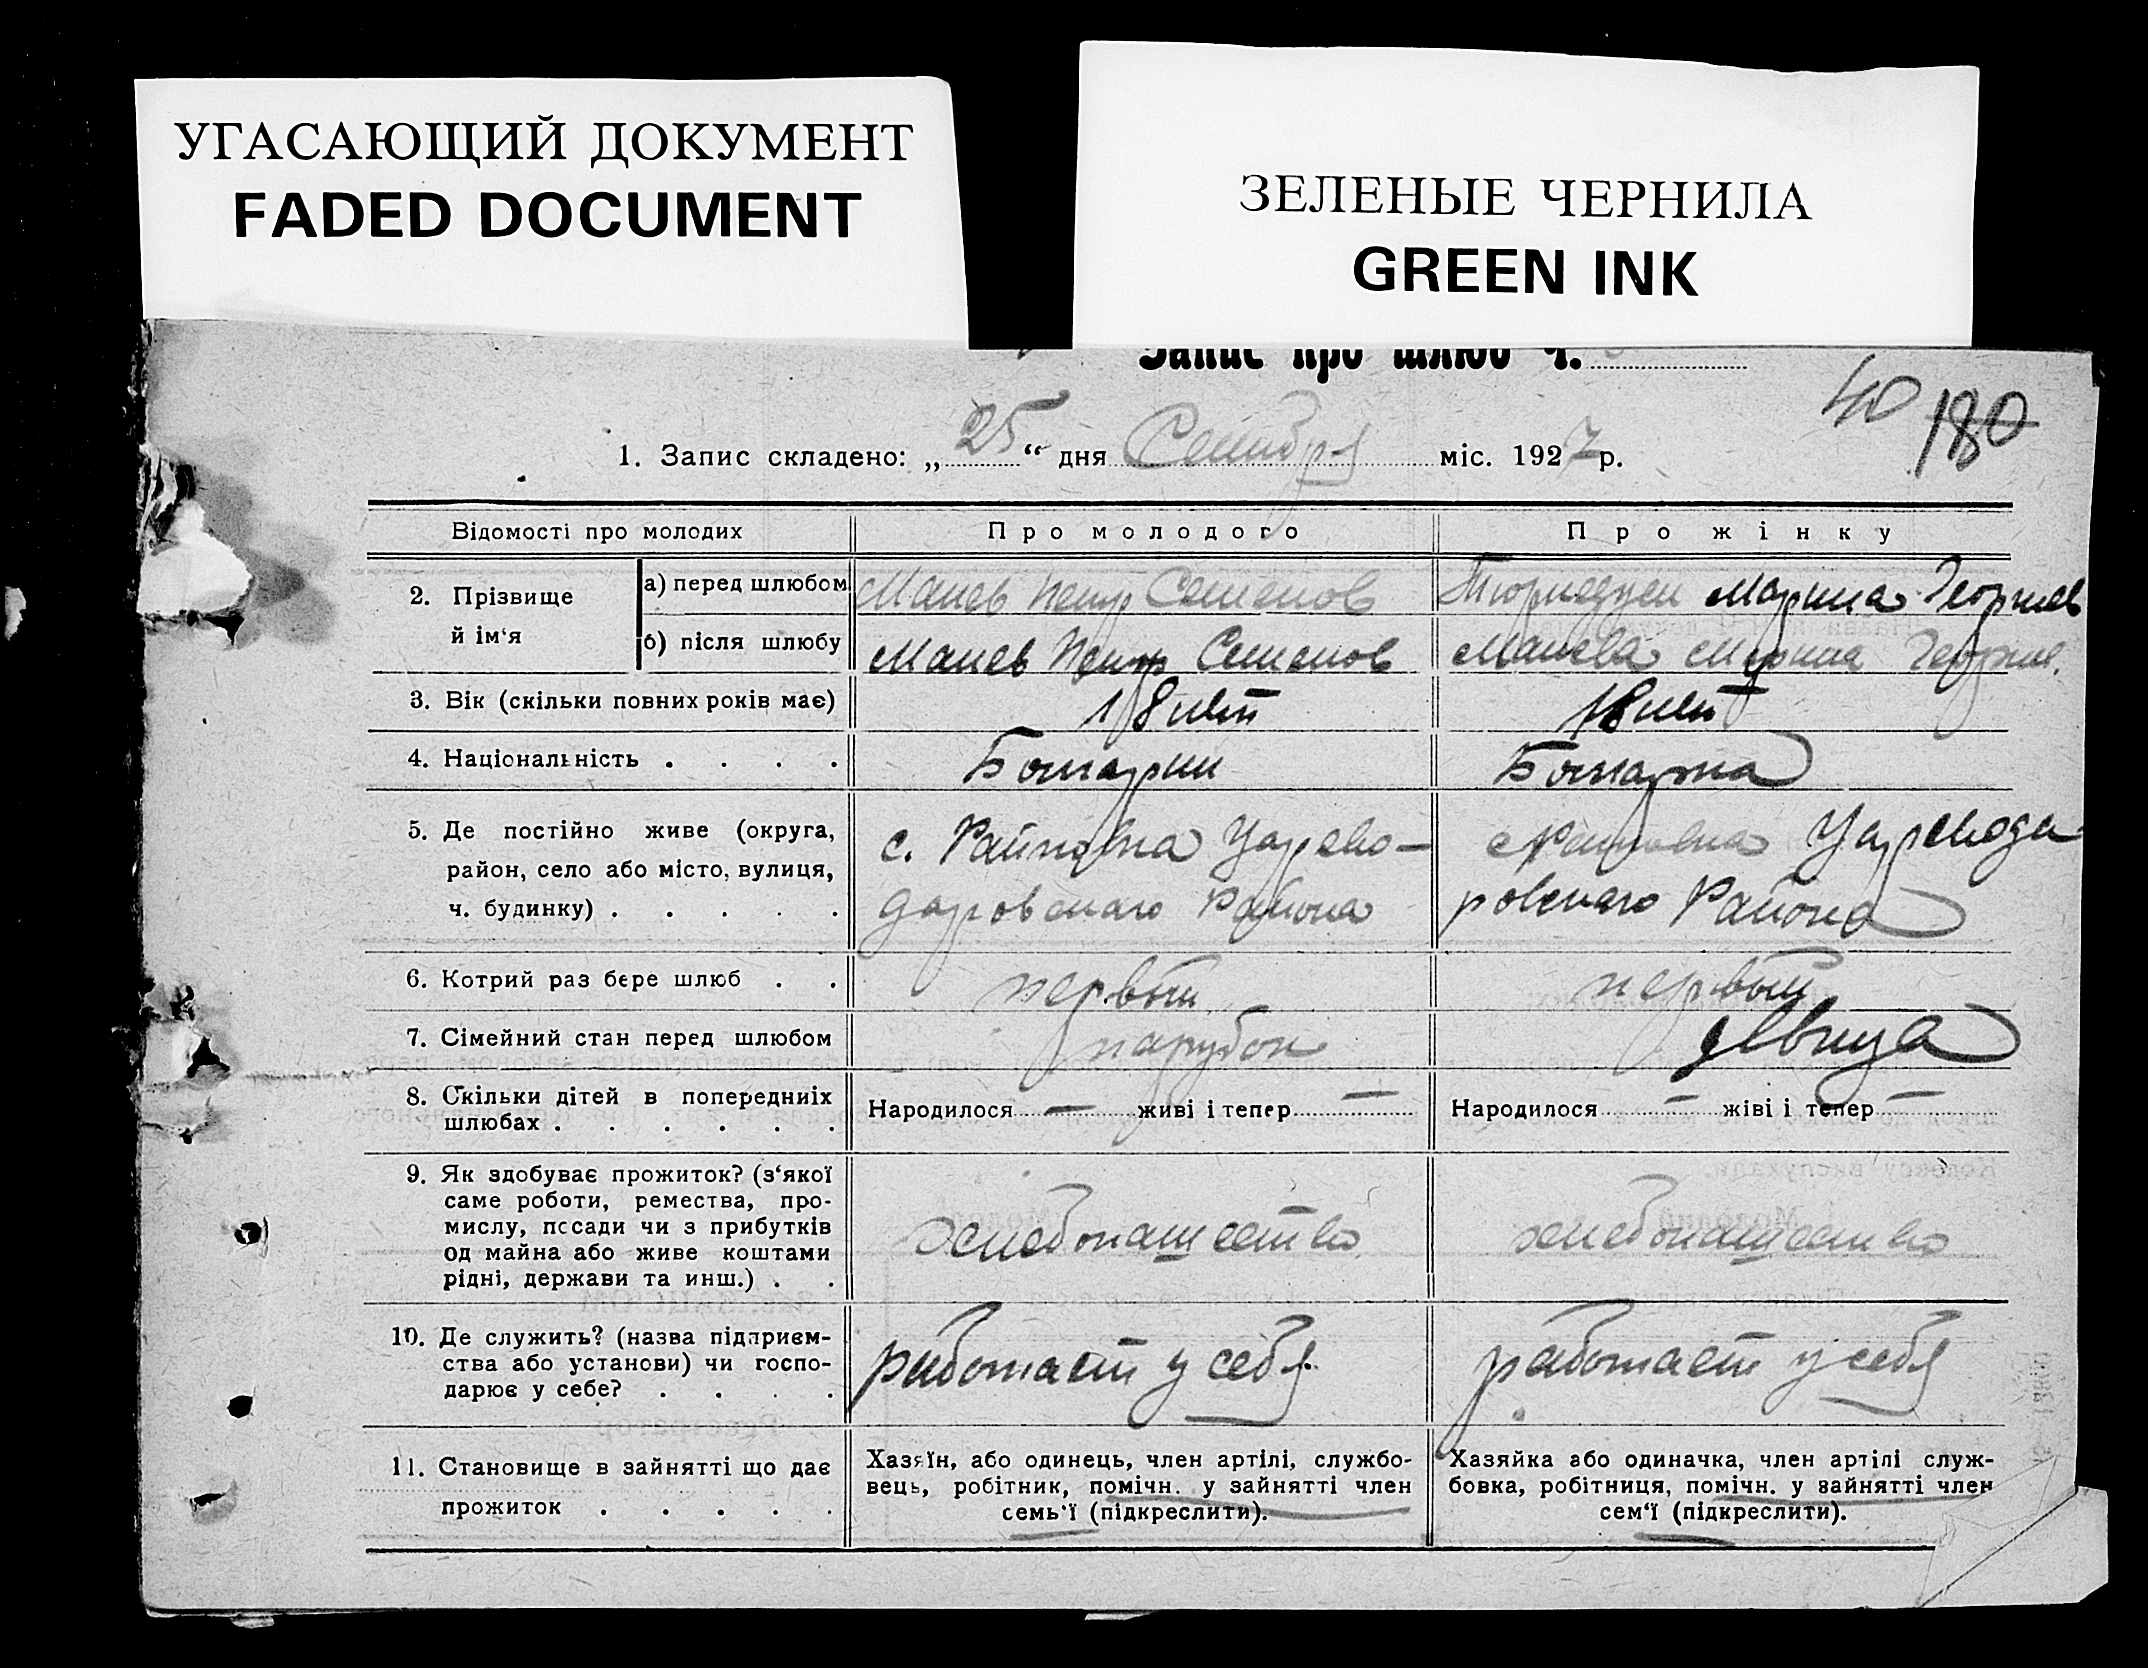 УГАСАЮЩИЙ ДОКУМЕНТ
FADED DOCUMENT
ЗЕЛЕНЫЕ ЧЕРНИЛА
GREEN INK
Запис про шлюб ч.
40 180
1. Запис складено: „25“ дня Сентября міс. 1927 р.
Відомості про молодих
Про молодого
Про жінку
2. Прізвище й ім‘я
а) перед шлюбом
Манев Петр Семенов
Марина Георгиев
б) після шлюбу
Манев Петр Семенов
Манева Марина Георгие.
3. Вік (скільки повних років має)
18 лет
18 лет
4. Національність . . . .
Болгарин
Болгарка
5. Де постійно живе (округа,
район, село або місто, вулиця,
ч. будинку) . . . . .
с. Райновка Царево-
даровского Района
с Райновка Царевода
ровского Района
6. Котрий раз бере шлюб . .
первый
первый
7. Сімейний стан перед шлюбом
парубок
девица
8. Скільки дітей в попередниіх
шлюбах . . . . . .
Народилося — живі і тепер —
Народилося — жіві і тепер —
9. Як здобуває прожиток? (з‘якої
саме роботи, ремества, про-
мислу, посади чи з прибутків
од майна або живе коштами
рідні, держави та инш.) . .
хлебопашество
хлебопашество
10. Де служить? (назва підприєм-
ства або установи) чи госпо-
дарює у себе? . . . .
работает у себя
работает у себя
11. Становище в зайнятті що дає
прожиток . . . . .
Хазяїн, або одинець, член артілі, службо-
вець, робітник, помічн. у зайнятті член
семь‘ї (підкреслити).
Хазяйка або одиначка, член артілі служ-
бовка, робітниця, помічн. у зайнятті член
сем‘ї (підкреслити).